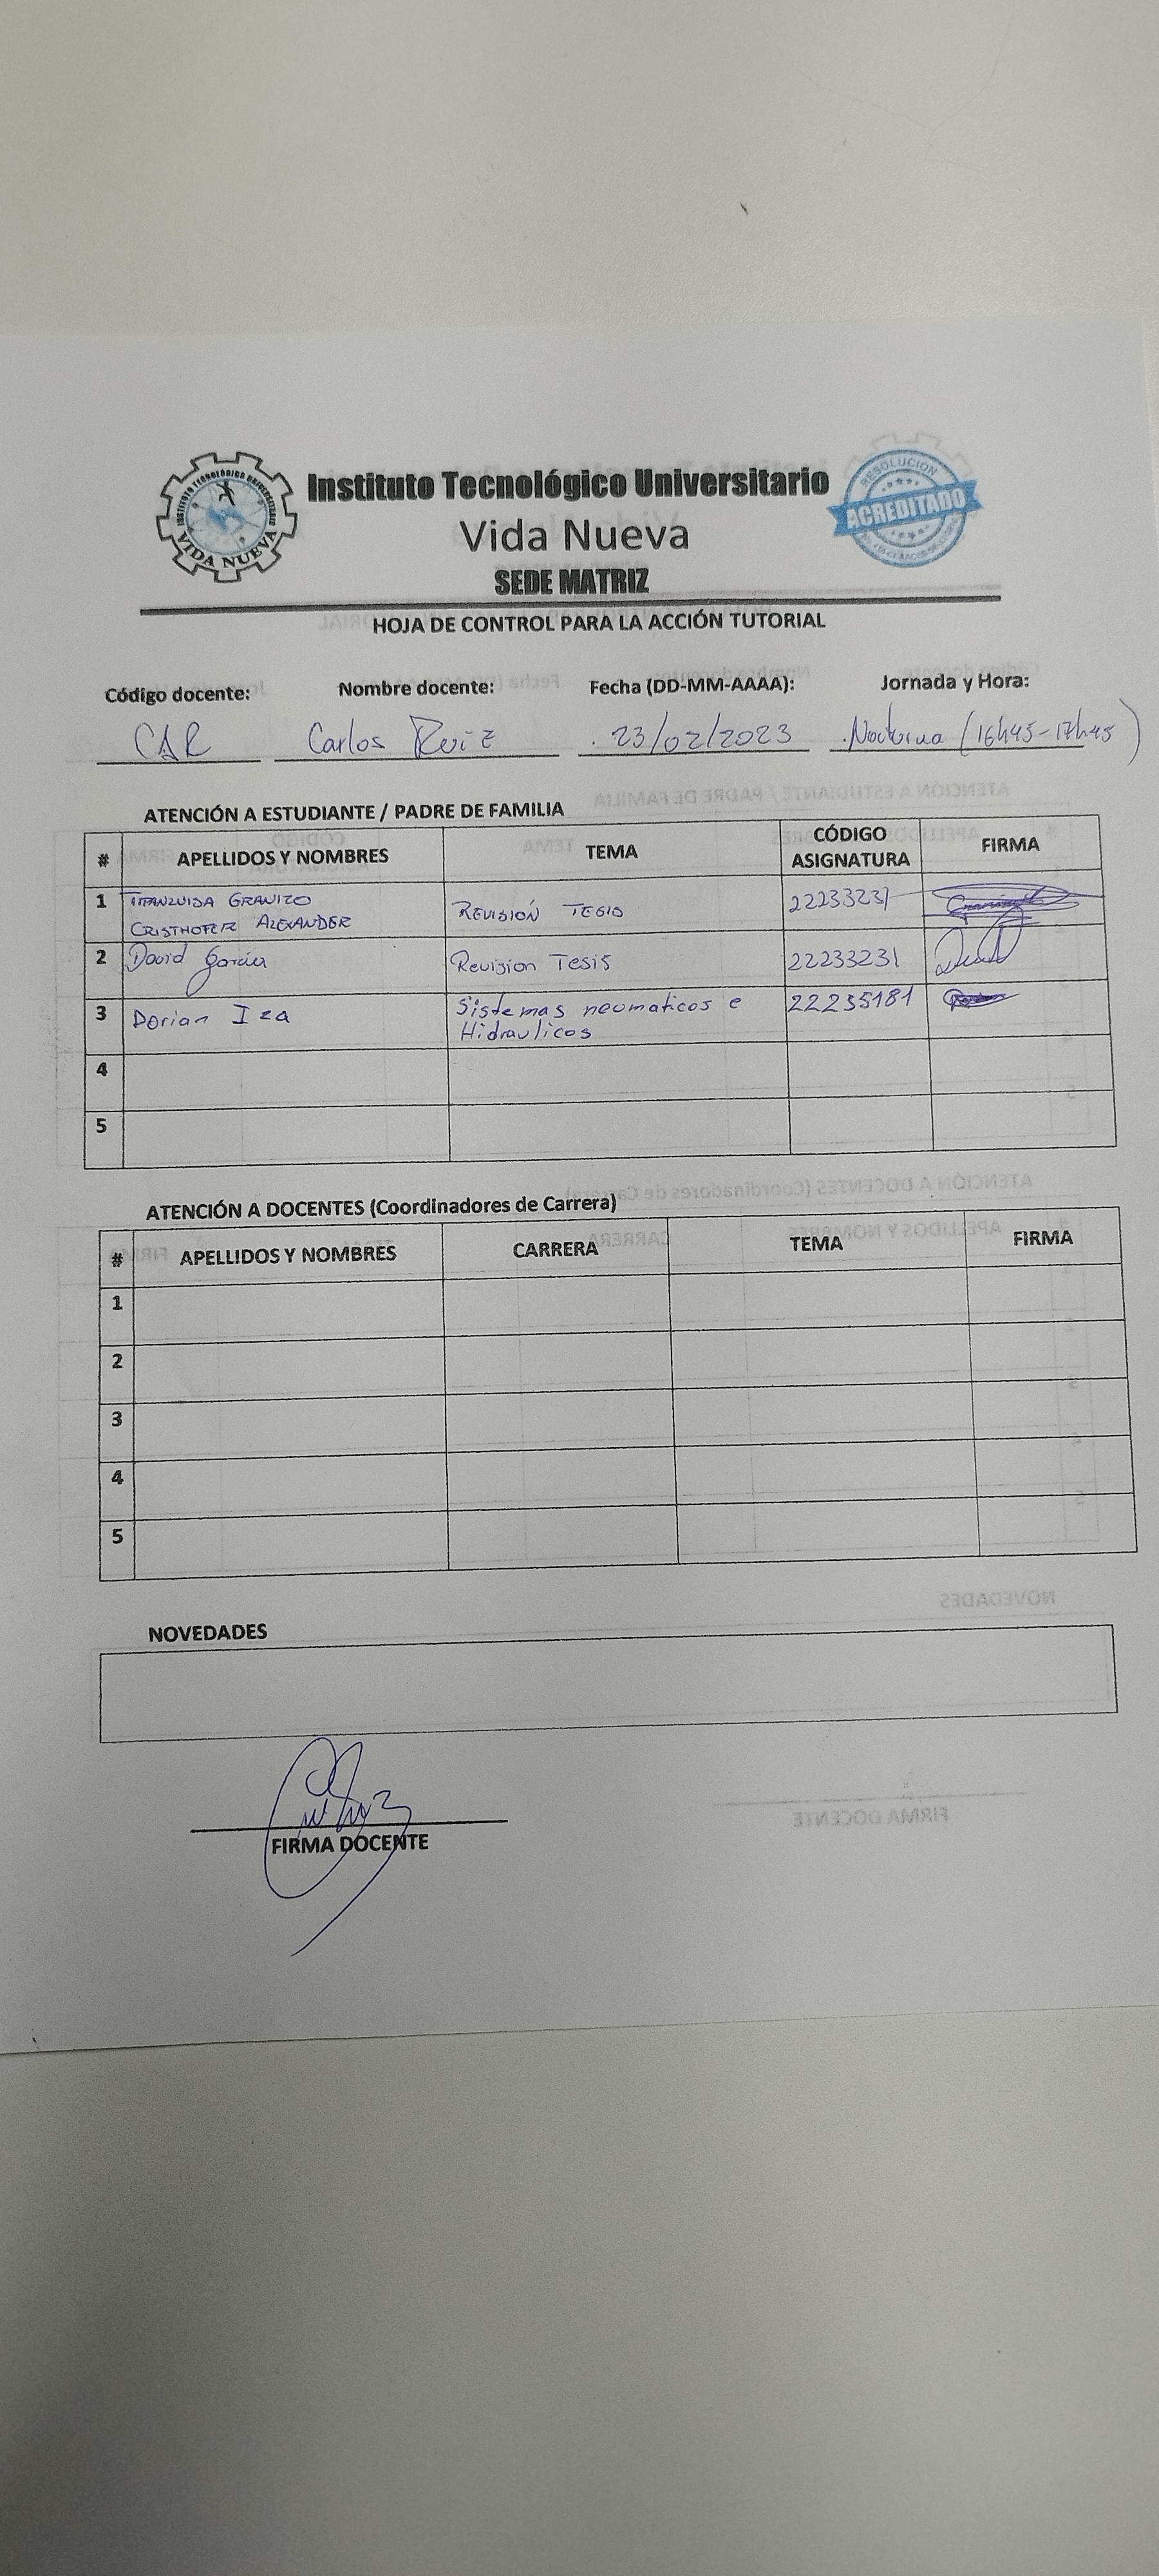 INSTITUTO TECNOLÓGICO UNIVERSITARIO
VIDA NUEVA
Instituto Tecnológico Universitario
Vida Nueva
SEDE MATRIZ
RESOLUCIÓN
ACREDITADO
HOJA DE CONTROL PARA LA ACCIÓN TUTORIAL
Código docente: Nombre docente: Fecha (DD-MM-AAAA): Jornada y Hora:
CAR Carlos Ruiz 23/02/2023 Nocturna (16h45-17h45)
ATENCIÓN A ESTUDIANTE / PADRE DE FAMILIA
# APELLIDOS Y NOMBRES TEMA CÓDIGO ASIGNATURA FIRMA
1 GRANIZO REVISIÓN TESIS 22233231
CRISTHOFER ALEXANDER
2 David García Revision Tesis 22233231
3 Dorian Iza Sistemas neumaticos e 22235181
Hidraulicos
4
5
ATENCIÓN A DOCENTES (Coordinadores de Carrera)
# APELLIDOS Y NOMBRES CARRERA TEMA FIRMA
1
2
3
4
5
NOVEDADES
FIRMA DOCENTE